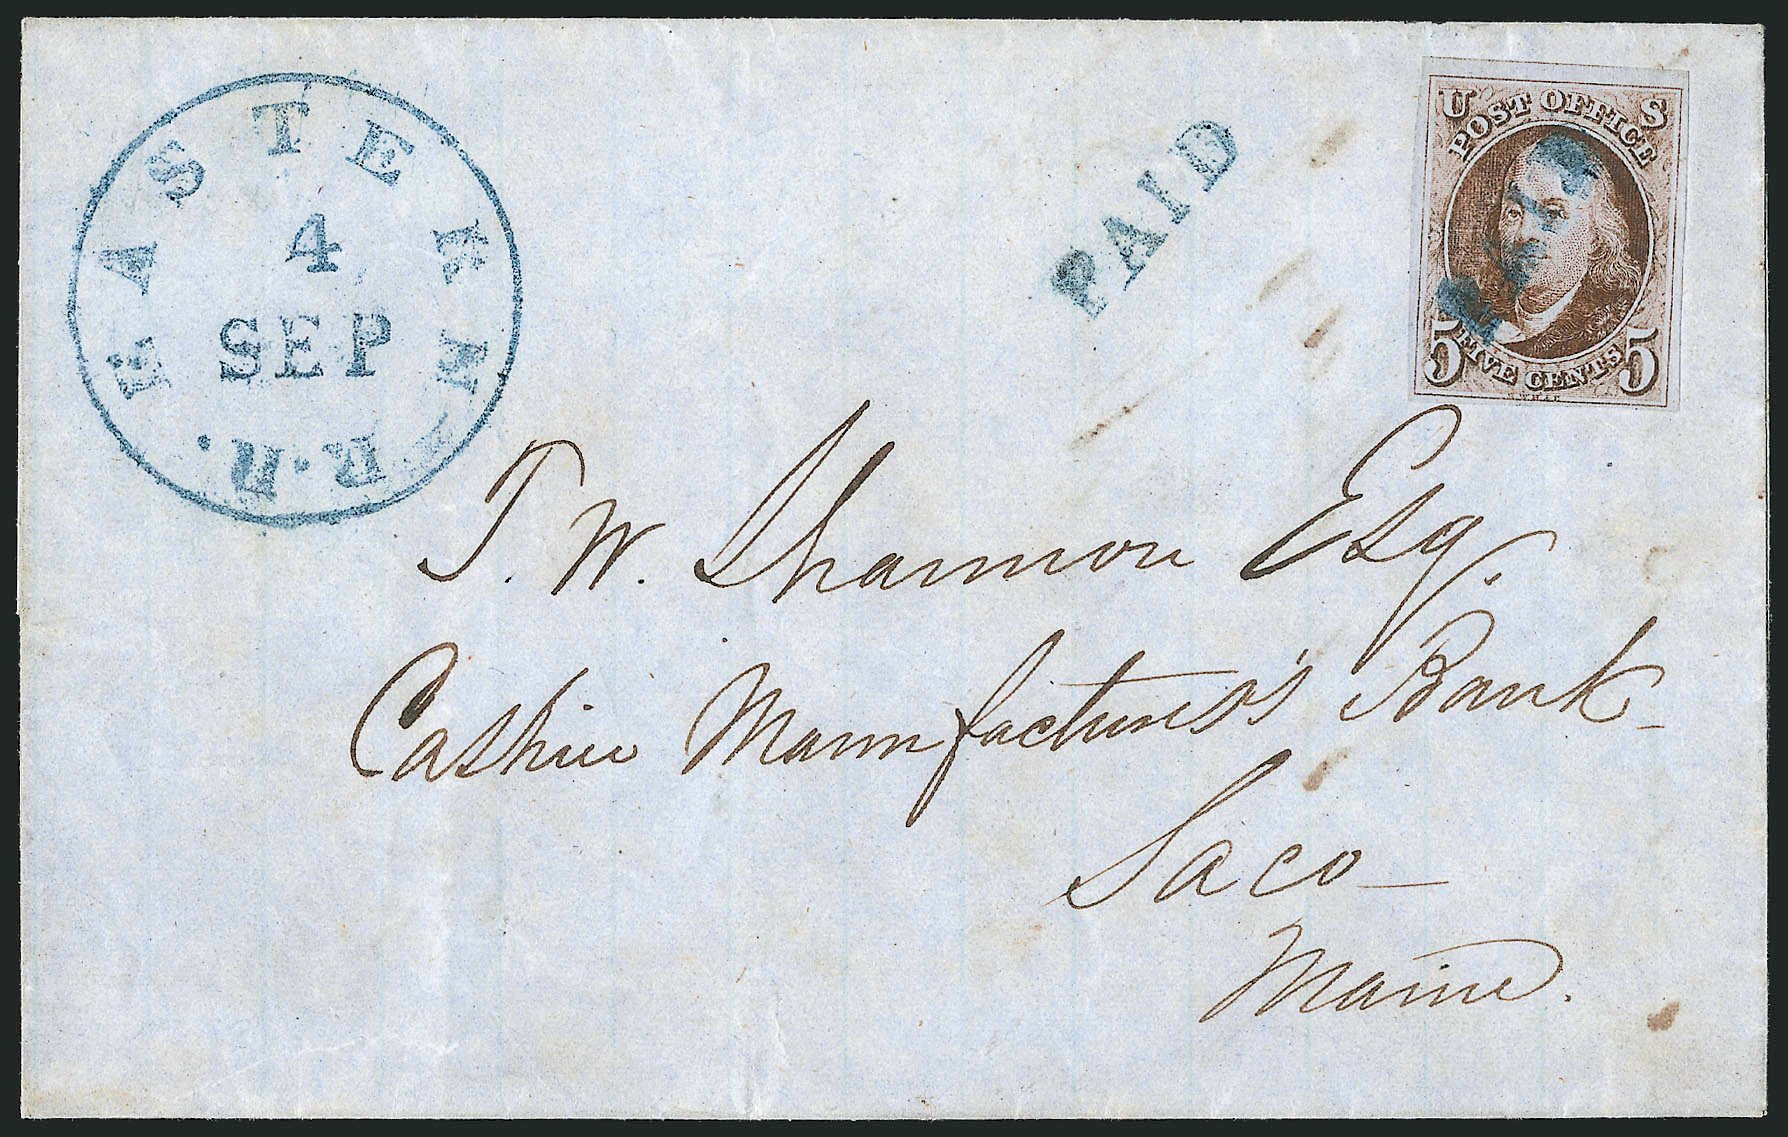 EASTERN R.R.
4
SEP
PAID
U S
POST OFFICE
PAID
5 FIVE CENTS 5
T. W. Shannon Esq.
Cashier Manufacturers's Bank
Saco
Maine.